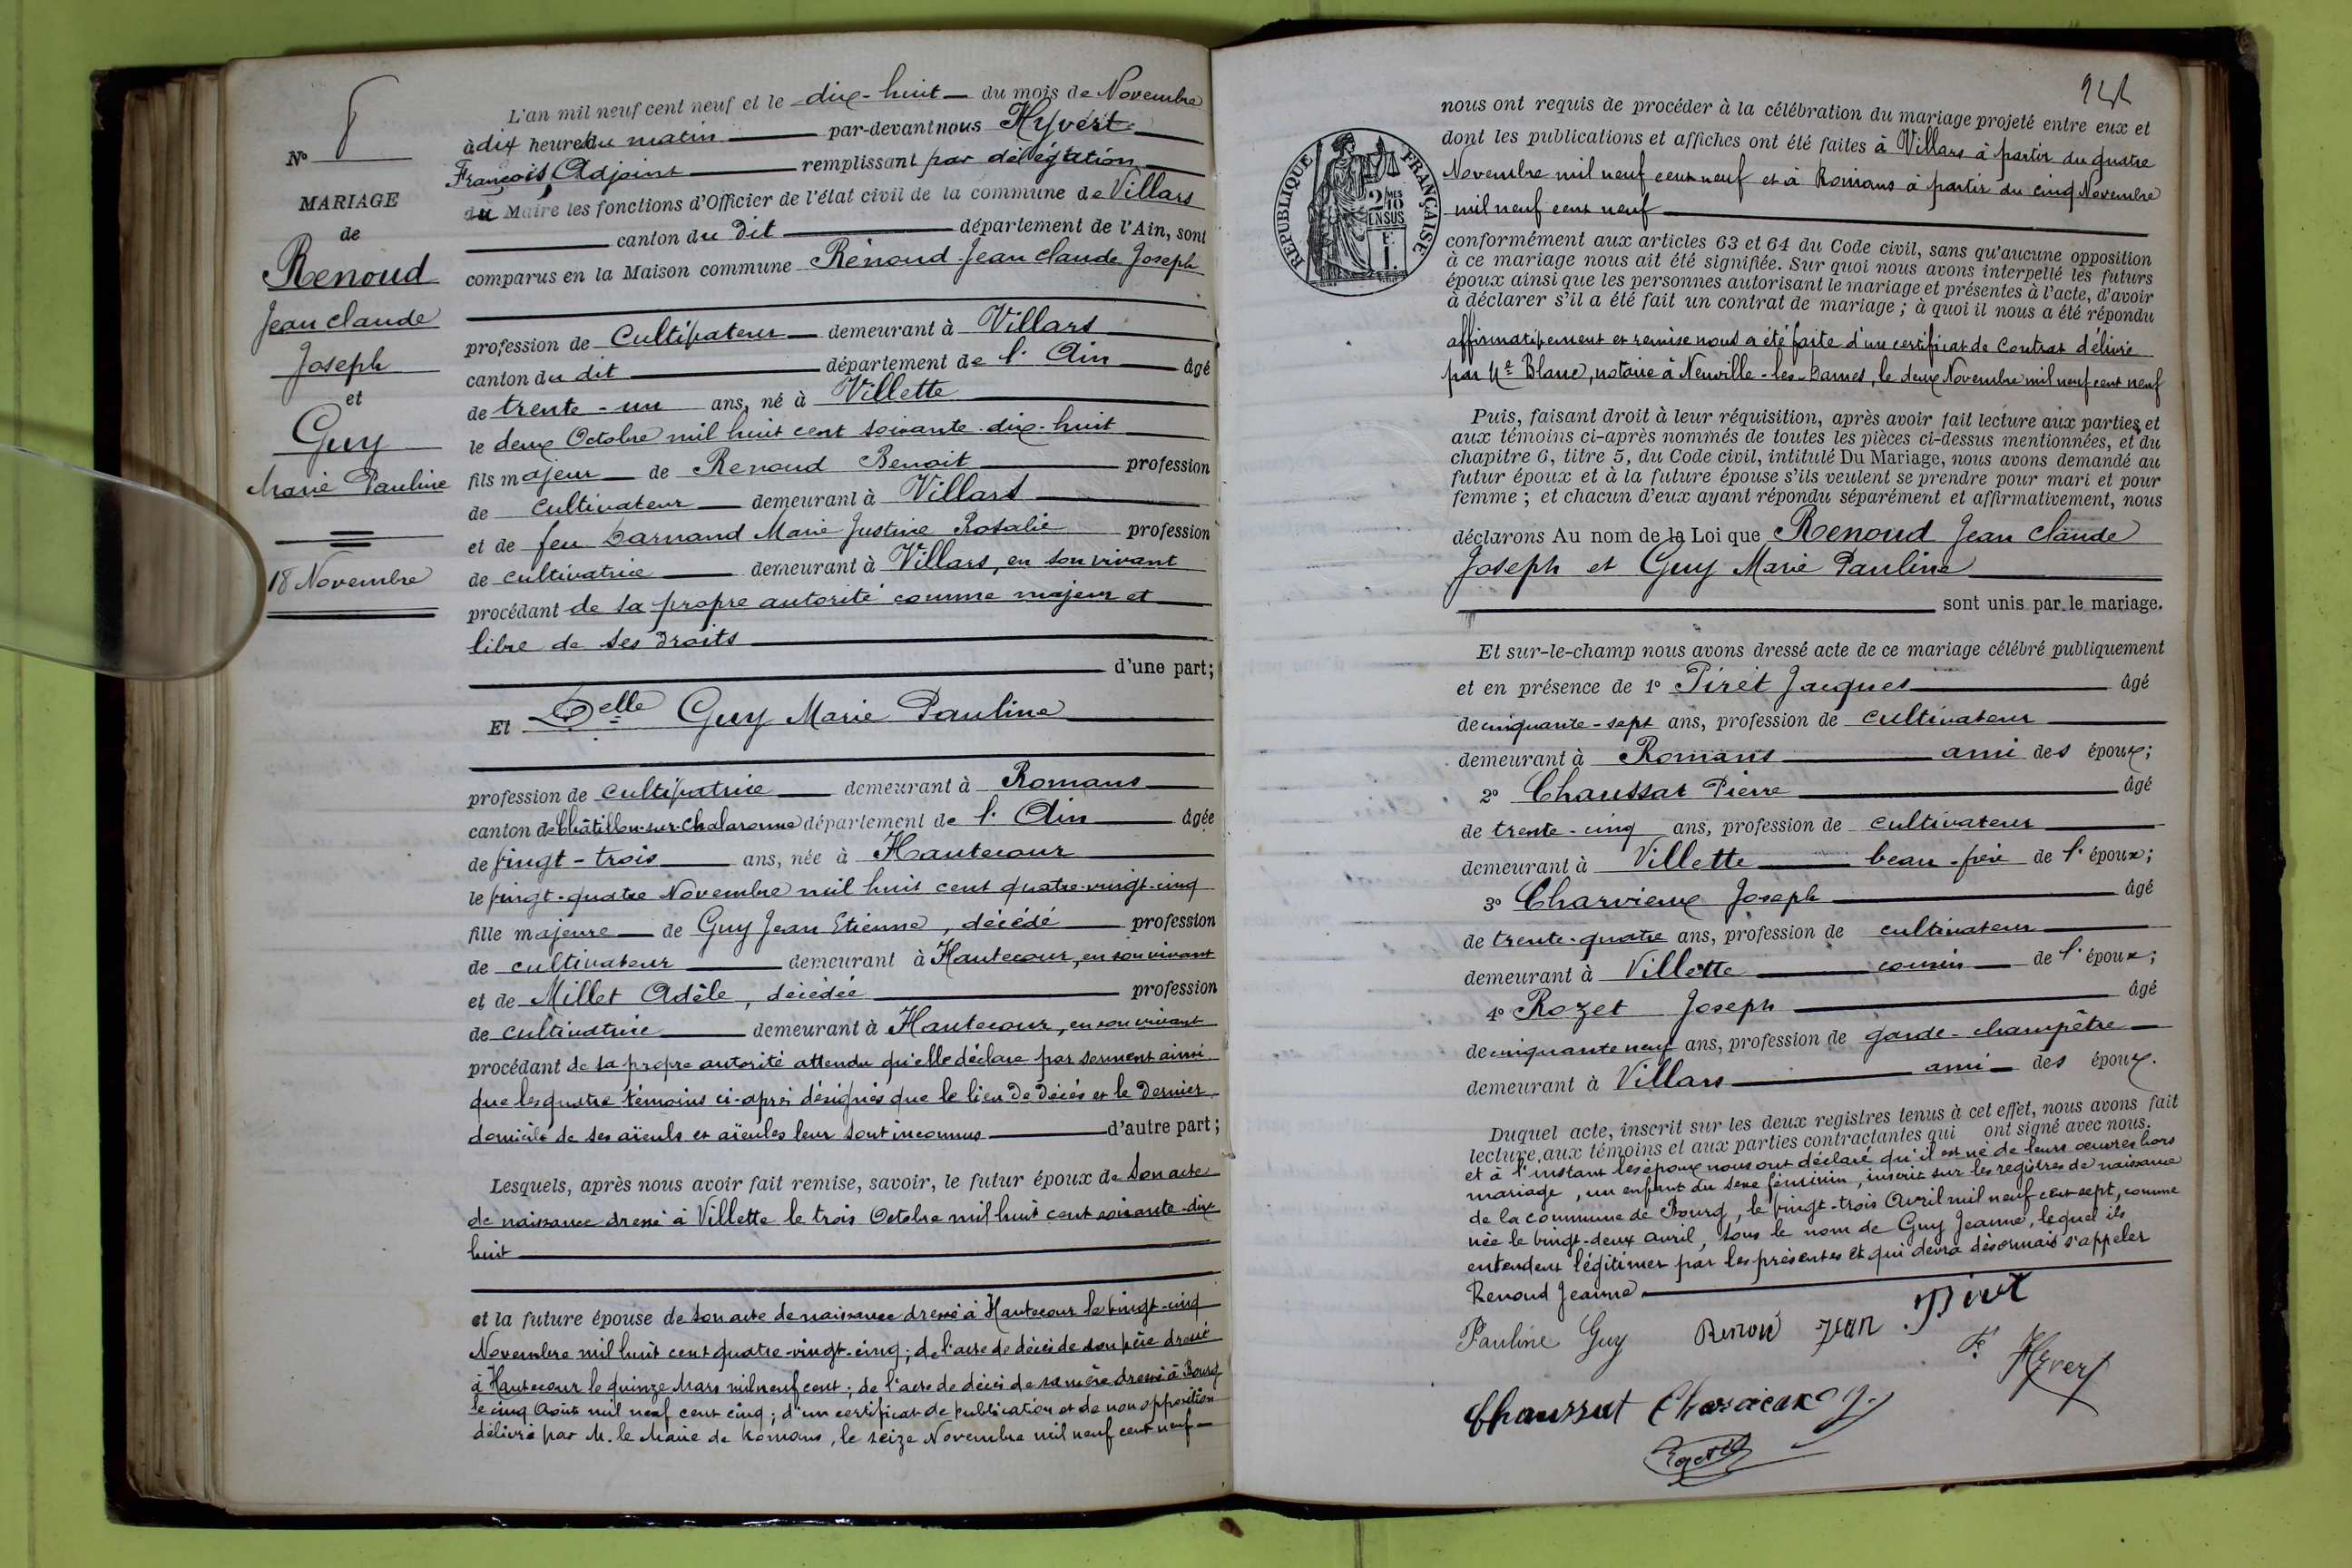 N° 8
MARIAGE
de
Renoud
Jean Claude
Joseph
et
Guy
Marie Pauline
18 Novembre
L'an mil neuf cent neuf et le dix-huit du mois de Novembre
à dix heures du matin par-devant nous Hyvert
François, Adjoint remplissant par délégation
du Maire les fonctions d'Officier de l'état civil de la commune de Villars
canton du dit département de l'Ain, sont
comparus en la Maison commune Renoud Jean Claude Joseph
profession de Cultivateur demeurant à Villars
canton du dit département de l'Ain âgé
de trente-un ans, né à Villette
le deux Octobre mil huit cent soixante-dix-huit
fils majeur de Renoud Benoit profession
de cultivateur demeurant à Villars
et de feu Darnand Marie Justine Rosalie profession
de cultivatrice demeurant à Villars, en son vivant
procédant de sa propre autorité comme majeur et
libre de ses droits
d'une part;
Et Delle Guy Marie Pauline
profession de cultivatrice demeurant à Romans
canton de Châtillon-sur-Chalaronne département de l'Ain âgée
de vingt-trois ans, née à Hautecour
le vingt-quatre Novembre mil huit cent quatre-vingt-cinq
fille majeure de Guy Jean Etienne, décédé profession
de cultivateur demeurant à Hautecour, en son vivant
et de Millet Adèle, décédée profession
de cultivatrice demeurant à Hautecour, en son vivant
procédant de sa propre autorité attendu qu'elle déclare par serment ainsi
que les quatre témoins ci-après désignés que le lieu de décès et le dernier
domicile de ses aïeuls et aïeules leur sont inconnus d'autre part;
Lesquels, après nous avoir fait remise, savoir, le futur époux de son acte
de naissance dressé à Villette le trois Octobre mil huit cent soixante-dix
huit
et la future épouse de son acte de naissance dressé à Hautecour le vingt-cinq
Novembre mil huit cent quatre-vingt-cinq; de l'acte de décès de son père dressé
à Hautecour le quinze Mars mil neuf cent; de l'acte de décès de sa mère dressé à Bourg
le cinq Août mil neuf cent cinq; d'un certificat de publication et de non opposition
délivré par M. le Maire de Romans, le seize Novembre mil neuf cent neuf
RÉPUBLIQUE FRANÇAISE
2/10 MES
EN SUS
F.
1.
nous ont requis de procéder à la célébration du mariage projeté entre eux et
dont les publications et affiches ont été faites à Villars à partir du quatre
Novembre mil neuf cent neuf et à Romans à partir du cinq Novembre
mil neuf cent neuf
conformément aux articles 63 et 64 du Code civil, sans qu'aucune opposition
à ce mariage nous ait été signifiée. Sur quoi nous avons interpellé les futurs
époux ainsi que les personnes autorisant le mariage et présentes à l'acte, d'avoir
à déclarer s'il a été fait un contrat de mariage; à quoi il nous a été répondu
affirmativement et remise nous a été faite d'un certificat de Contrat délivré
par Me Blanc, notaire à Neuville-les-Dames, le deux Novembre mil neuf cent neuf
Puis, faisant droit à leur réquisition, après avoir fait lecture aux parties et
aux témoins ci-après nommés de toutes les pièces ci-dessus mentionnées, et du
chapitre 6, titre 5, du Code civil, intitulé Du Mariage, nous avons demandé au
futur époux et à la future épouse s'ils veulent se prendre pour mari et pour
femme; et chacun d'eux ayant répondu séparément et affirmativement, nous
déclarons Au nom de la Loi que Renoud Jean Claude
Joseph et Guy Marie Pauline
sont unis par le mariage.
Et sur-le-champ nous avons dressé acte de ce mariage célébré publiquement
et en présence de 1° Piret Jacques âgé
de cinquante-sept ans, profession de cultivateur
demeurant à Romans ami des époux;
2° Chaussat Pierre âgé
de trente-cinq ans, profession de cultivateur
demeurant à Villette beau-frère de l'époux;
3° Charvieux Joseph âgé
de trente-quatre ans, profession de cultivateur
demeurant à Villette cousin de l'époux;
4° Rozet Joseph âgé
de cinquante neuf ans, profession de garde-champêtre
demeurant à Villars ami des époux.
Duquel acte, inscrit sur les deux registres tenus à cet effet, nous avons fait
lecture aux témoins et aux parties contractantes qui ont signé avec nous.
et à l'instant les époux nous ont déclaré qu'il est né de leurs œuvres hors
mariage, un enfant du sexe féminin, inscrit sur les registres de naissance
de la commune de Bourg, le vingt-trois Avril mil neuf cent sept, comme
née le vingt-deux avril, sous le nom de Guy Jeanne, lequel ils
entendent légitimer par les présentes et qui devra désormais s'appeler
Renoud Jeanne
Pauline Guy Renoud Jean Piret
Hyvert
Chaussat Charvieux J.